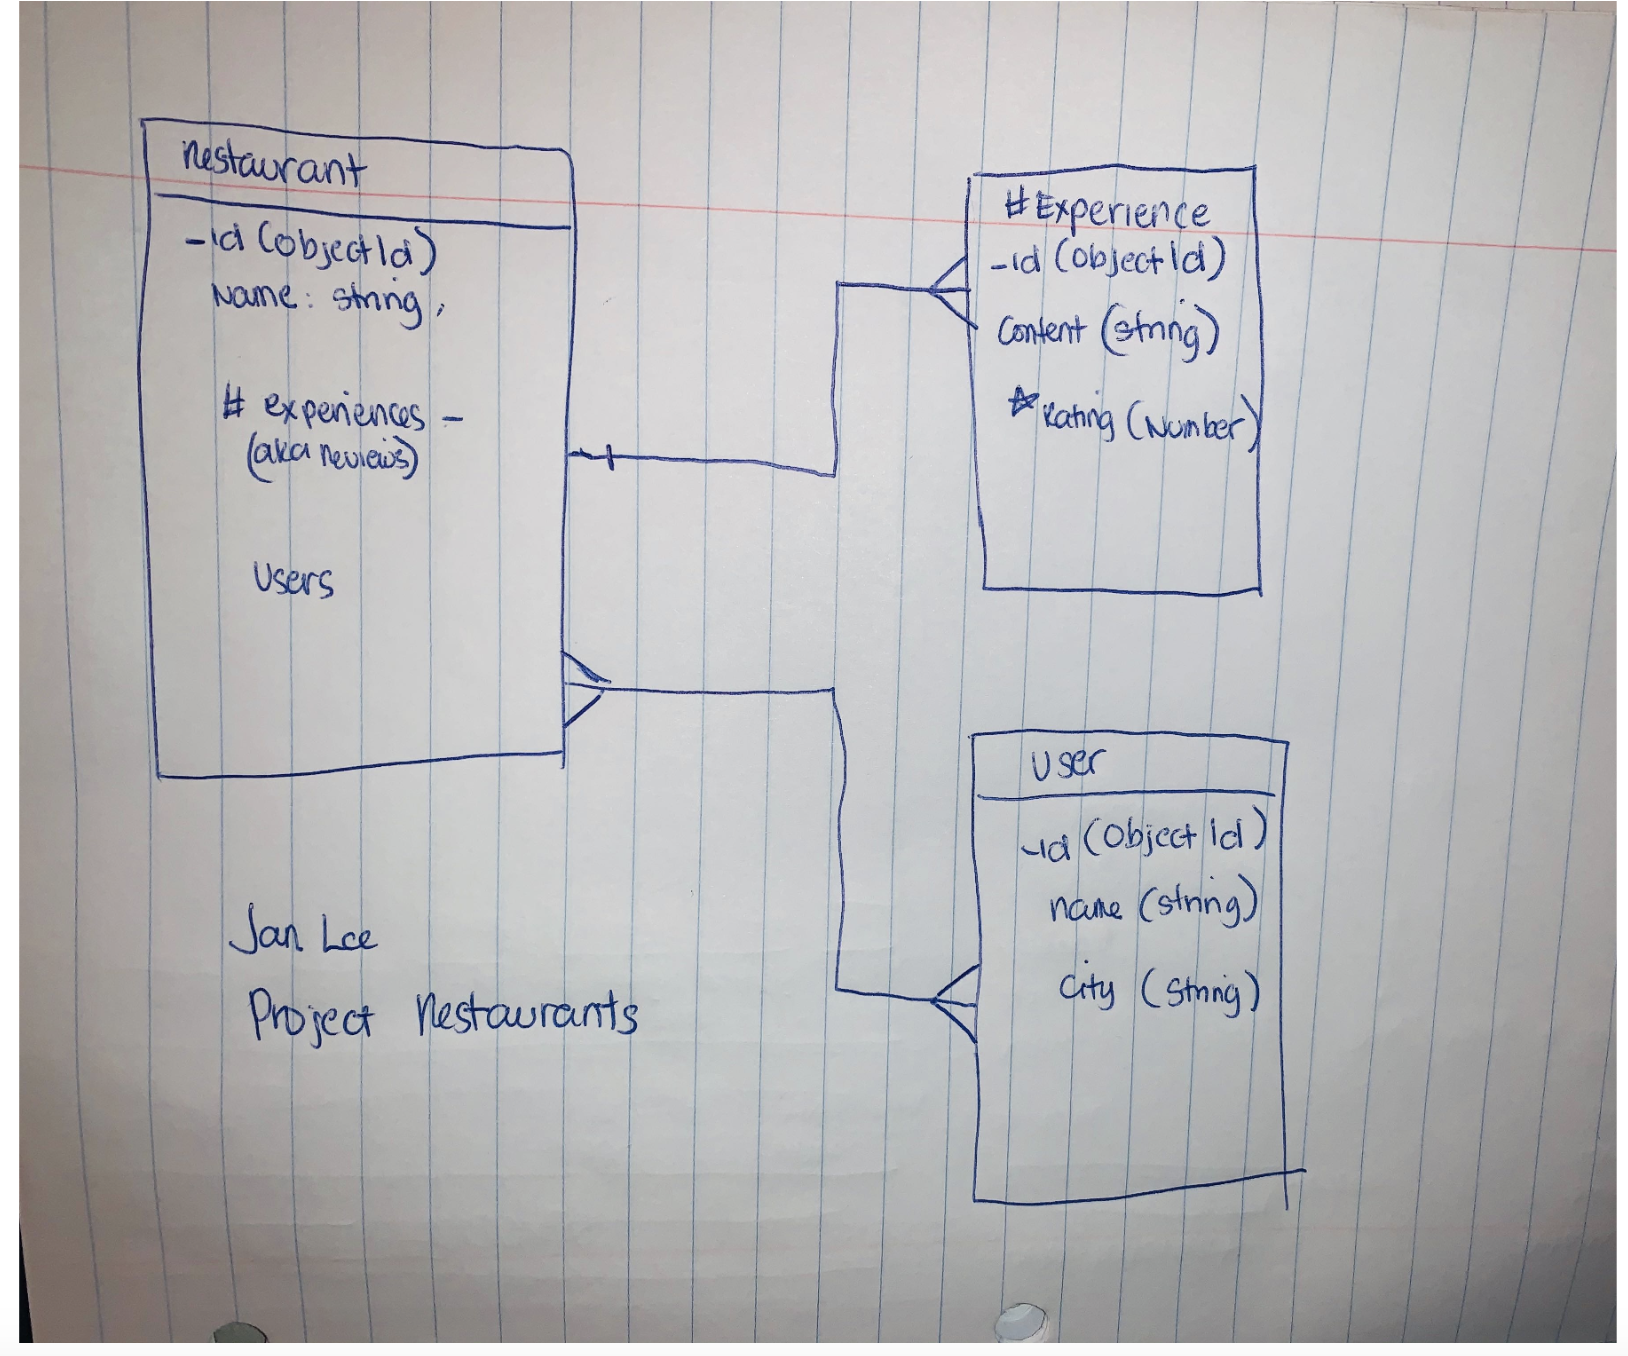 restaurant
_id (ObjectId)
Name: string,
# experiences -
(aka reviews)
Users
#Experience
_id (ObjectId)
Content (string)
Rating (Number)
User
_id (Object Id)
name (string)
City (String)
Jan Lee
Project Restaurants